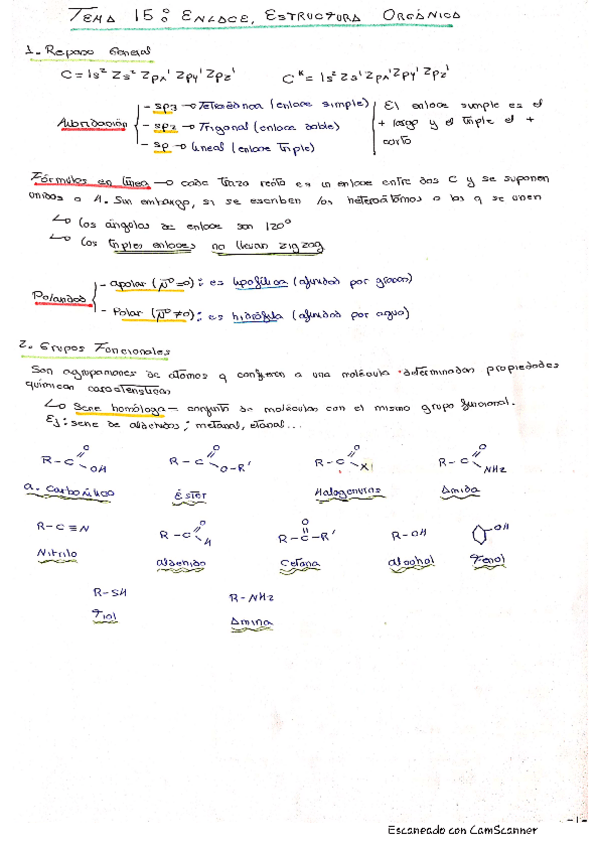 TEMA 15: ENLACE, ESTRUCTURA ORGÁNICA
1. Repaso General
C = 1s² 2s² 2px¹ 2py¹ 2pz¹
C* = 1s² 2s¹ 2px¹ 2py¹ 2pz¹
Hibridación
- sp3 → Tetraédrica (enlace simple)
- sp2 → Trigonal (enlace doble)
- sp → Lineal (enlace triple)
El enlace simple es el
+ largo y el triple el +
corto
Fórmulas en línea → cada trazo recto es un enlace entre dos C y se suponen
unidos a H. Sin embargo, sí se escriben los heteroátomos a los q se unen
↳ Los ángulos de enlace son 120º
↳ Los triples enlaces no llevan zig zag
Polaridad
- apolar (μ⃗=0): es lipofílica (afinidad por grasas)
- Polar (μ⃗≠0): es hidrófila (afinidad por agua)
2. Grupos Funcionales
Son agrupaciones de átomos q confieren a una molécula determinadas propiedades
químicas características
↳ Serie homóloga — conjunto de moléculas con el mismo grupo funcional.
Ej: serie de aldehídos; metanal, etanal...
R-C O OH
R-C O O-R'
R-C O X
R-C O NH2
a. Carboxílico
Éster
Halogenuros
Amida
R-C≡N
R-C O H
R-C-R' O
R-OH
OH
Nitrilo
aldehido
Cetona
alcohol
Fenol
R-SH
R-NH2
Tiol
Amina
-1-
Escaneado con CamScanner